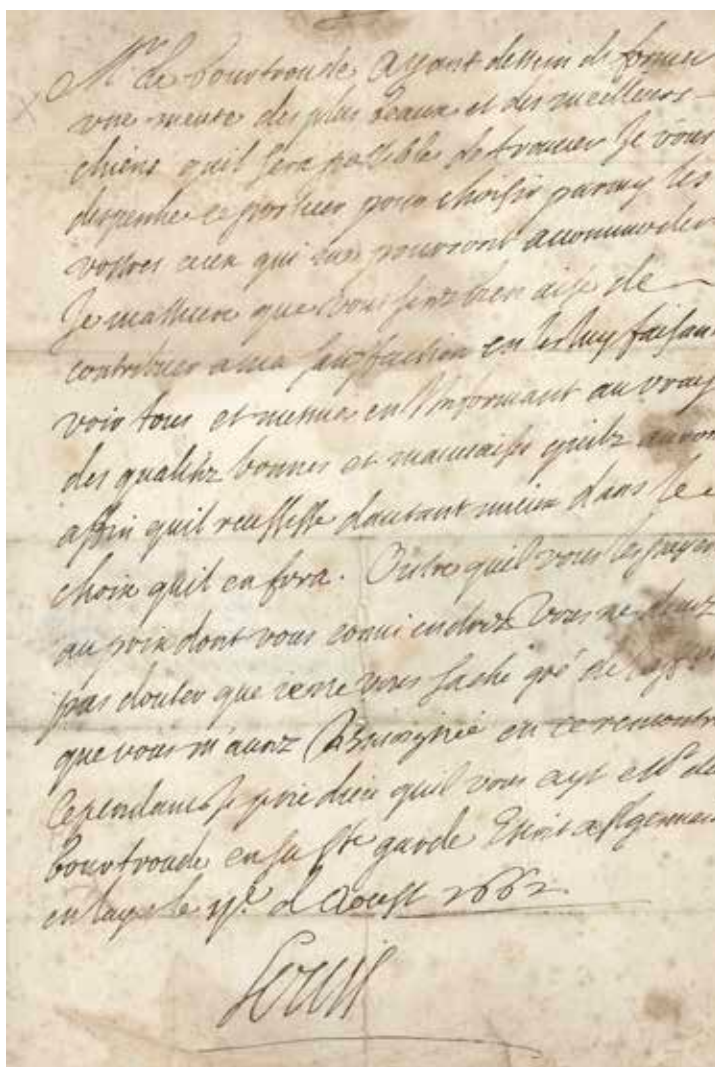 Mr de Bourtroude Ayant dessein de former
une meute des plus beaux et des meilleurs
chiens quil sera possible de trouver Je vous
despesche ce porteur pour choisir parmy les
vostres ceux qui me pourront accommoder
Je masseure que vous serez bien aise de
contribuer a ma satisfaction en les luy faisant
voir tous et mesme en l'informant au vray
des qualitez bonnes et mauvaises quilz auront
affin quil reussisse dautant mieux dans le
choix quil en fera. Outre quil vous les payera
au prix dont vous conviendrez Vous ne devez
pas douter que je ne vous sache gré de
que vous m'aurez tesmoignée en ce rencontre
Cependant je prie dieu quil vous ayt Mr de
Bourtroude en sa ste garde Escrit a St germain
en laye le d'Aoust 1662
Louis